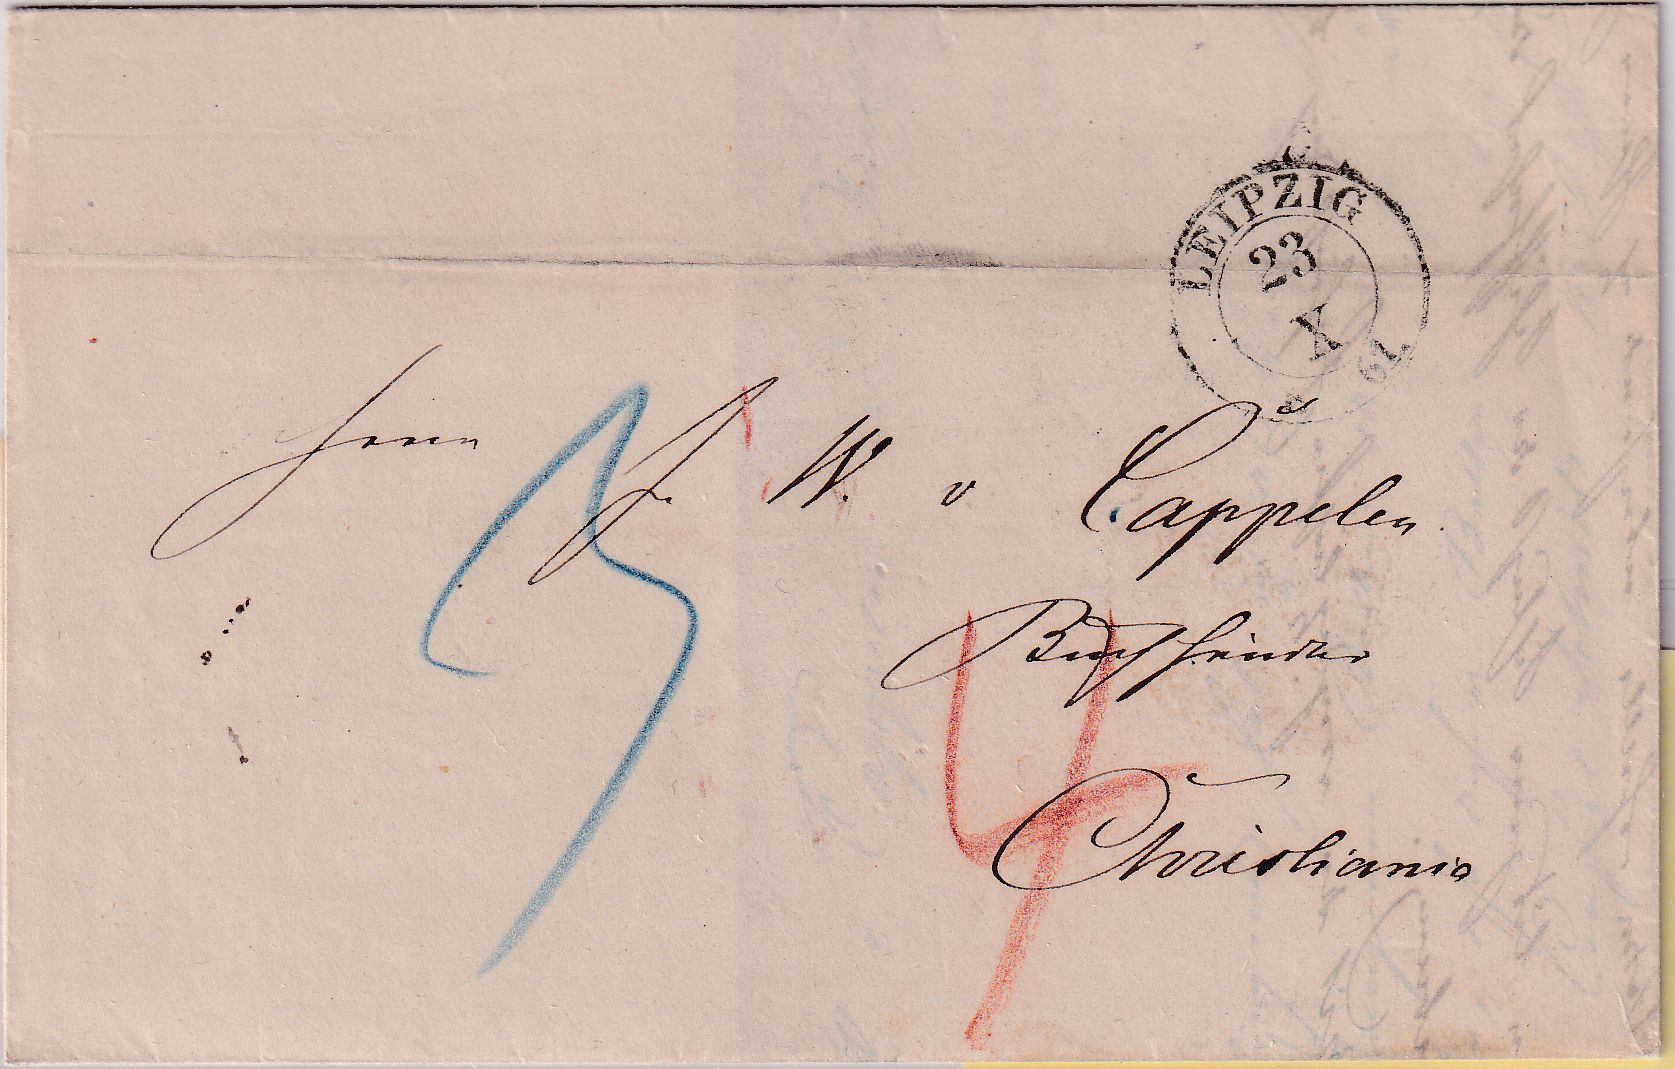 LEIPZIG
23
X
61
Herrn J. W. v Cappelen
Buchhändler
Christiania
4